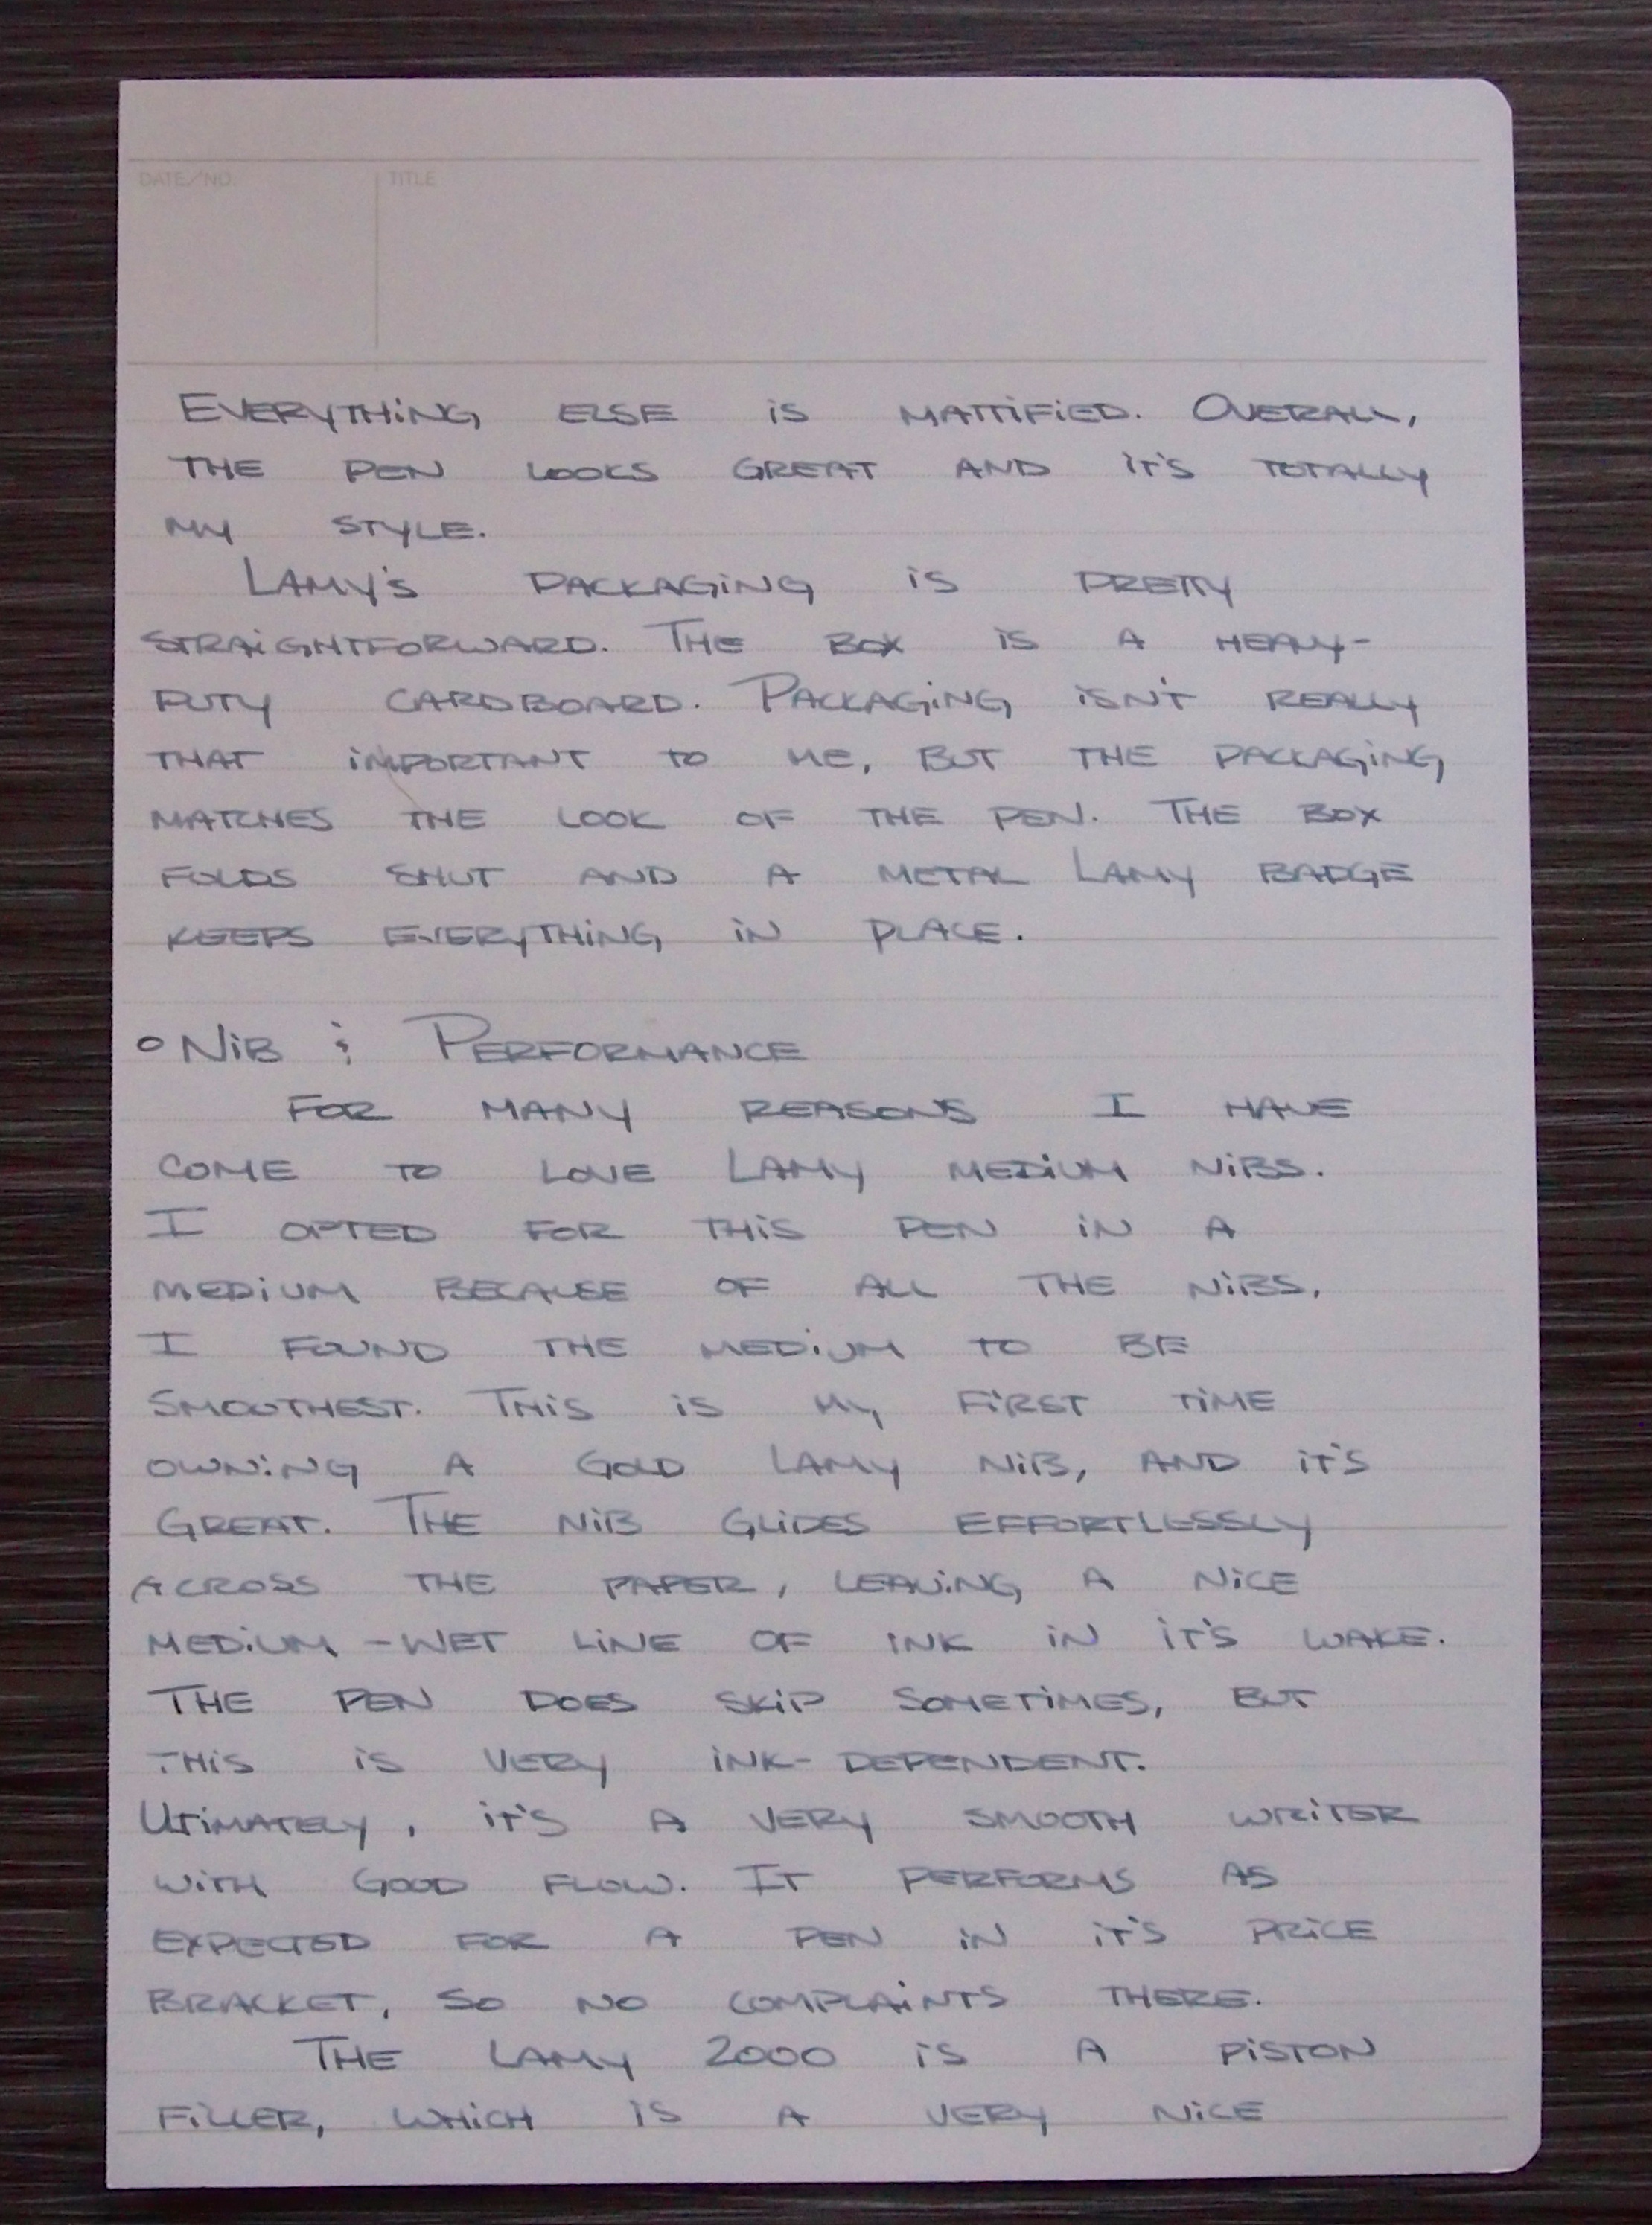 DATE/NO. TITLE
EVERYTHING ELSE iS MATTiFiED. OVERALL,
THE PEN LOOKS GREAT AND iT'S TOTALLY
MY STYLE.
LAMY'S PACKAGiNG iS PRETTY
STRAiGHTFORWARD. THE BOX iS A HEAVY-
DUTY CARDBOARD. PACKAGiNG iSN'T REALLY
THAT iMPORTANT TO ME, BUT THE PACKAGiNG
MATCHES THE LOOK OF THE PEN. THE BOX
FOLDS SHUT AND A METAL LAMY BADGE
KEEPS EVERYTHiNG iN PLACE.
○ NiB & PERFORMANCE
FOR MANY REASONS I HAVE
COME TO LOVE LAMY MEDiUM NiBS.
I OPTED FOR THiS PEN iN A
MEDiUM BECAUSE OF ALL THE NiBS,
I FOUND THE MEDiUM TO BE
SMOOTHEST. THiS iS MY FiRST TiME
OWNiNG A GOLD LAMY NiB, AND iT'S
GREAT. THE NiB GLiDES EFFORTLESSLY
ACROSS THE PAPER, LEAViNG A NiCE
MEDiUM-WET LiNE OF iNK iN iT'S WAKE.
THE PEN DOES SKiP SOMETiMES, BUT
THiS iS VERY iNK-DEPENDENT.
UTiMATELY, iT'S A VERY SMOOTH WRiTER
WiTH GOOD FLOW. IT PERFORMS AS
EXPECTED FOR A PEN iN iT'S PRiCE
BRACKET, SO NO COMPLAiNTS THERE.
THE LAMY 2000 iS A PiSTON
FiLLER, WHiCH iS A VERY NiCE